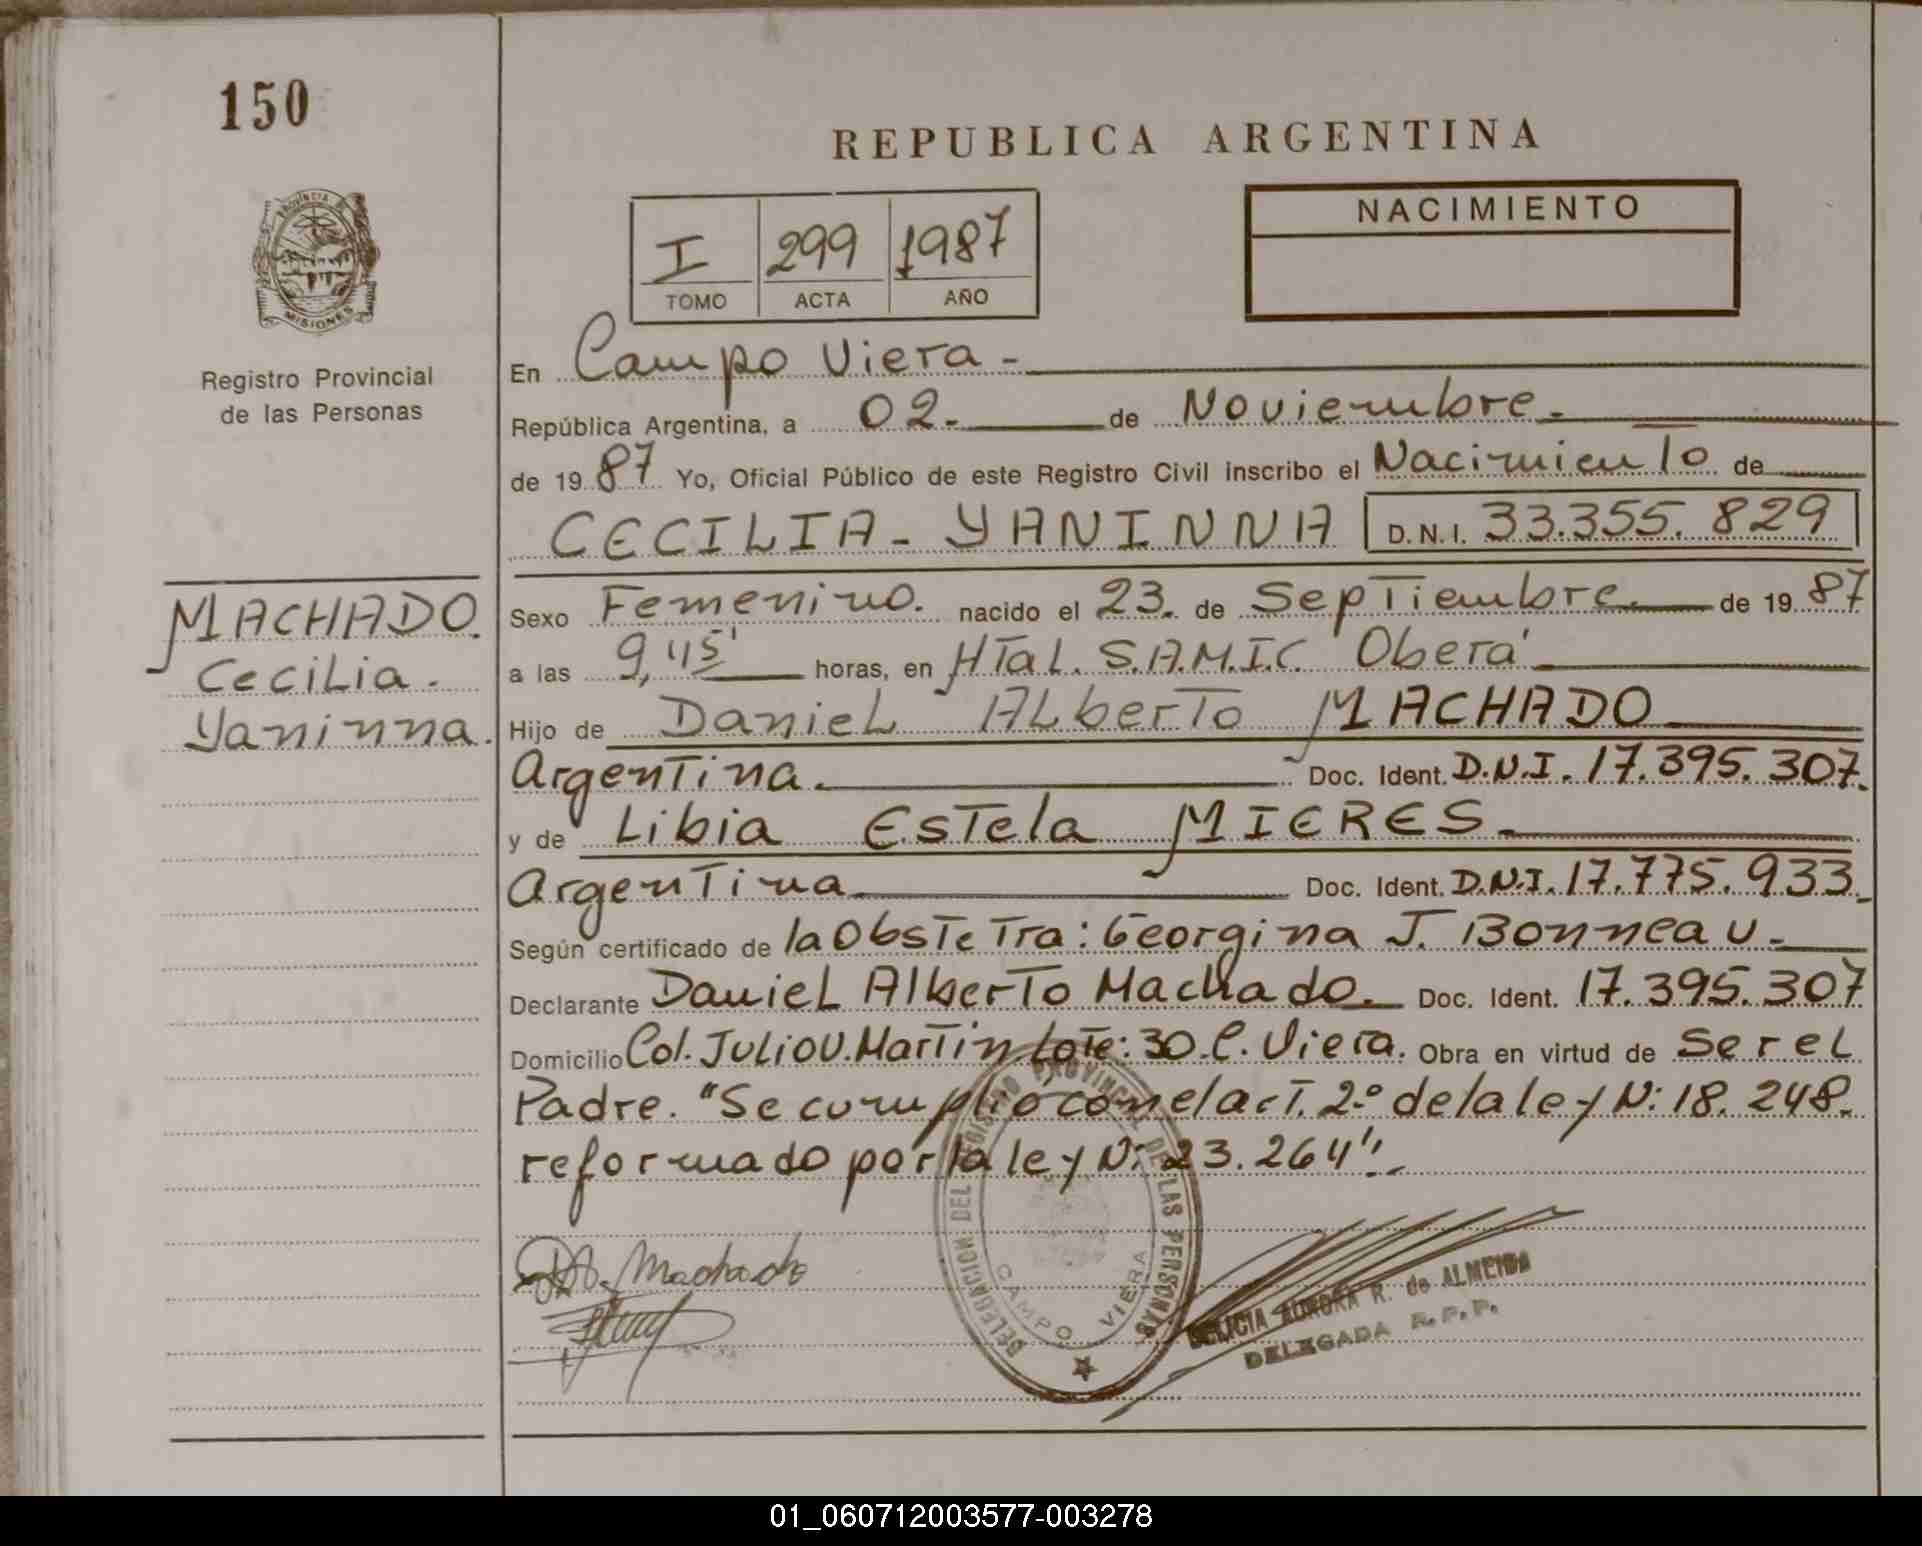 150
REPUBLICA ARGENTINA
NACIMIENTO
I 299 1987
TOMO ACTA AÑO
PROVINCIA DE
MISIONES
Registro Provincial
de las Personas
En Campo Viera -
República Argentina, a 02. de Noviembre.
de 1987 Yo, Oficial Público de este Registro Civil inscribo el Nacimiento de
CECILIA - YANINNA D.N.I. 33.355.829
MACHADO.
Cecilia.
Yaninna.
Sexo Femenino. nacido el 23. de Septiembre. de 1987
a las 9,45' horas, en HTal. S.A.M.I.C. Oberá
Hijo de Daniel Alberto MACHADO
Argentina. Doc. Ident. D.N.I. 17.395.307.
y de Libia Estela MIERES.
Argentina Doc. Ident. D.N.I. 17.775.933.
Según certificado de la Obstetra: Georgina J. Bonneau.
Declarante Daniel Alberto Machado. Doc. Ident. 17.395.307
Domicilio Col. Julio U. Martin Lote: 30 C. Viera. Obra en virtud de Ser el
Padre. "Se cumplio con el art. 2º de la ley N: 18.248.
reformado por la ley N: 23.264".
D.A. Machado
DELEGACION DEL REGISTRO PROVINCIAL DE LAS PERSONAS
CAMPO VIERA
AURORA R. de ALMEIDA
DELEGADA R.P.P.
01_060712003577-003278